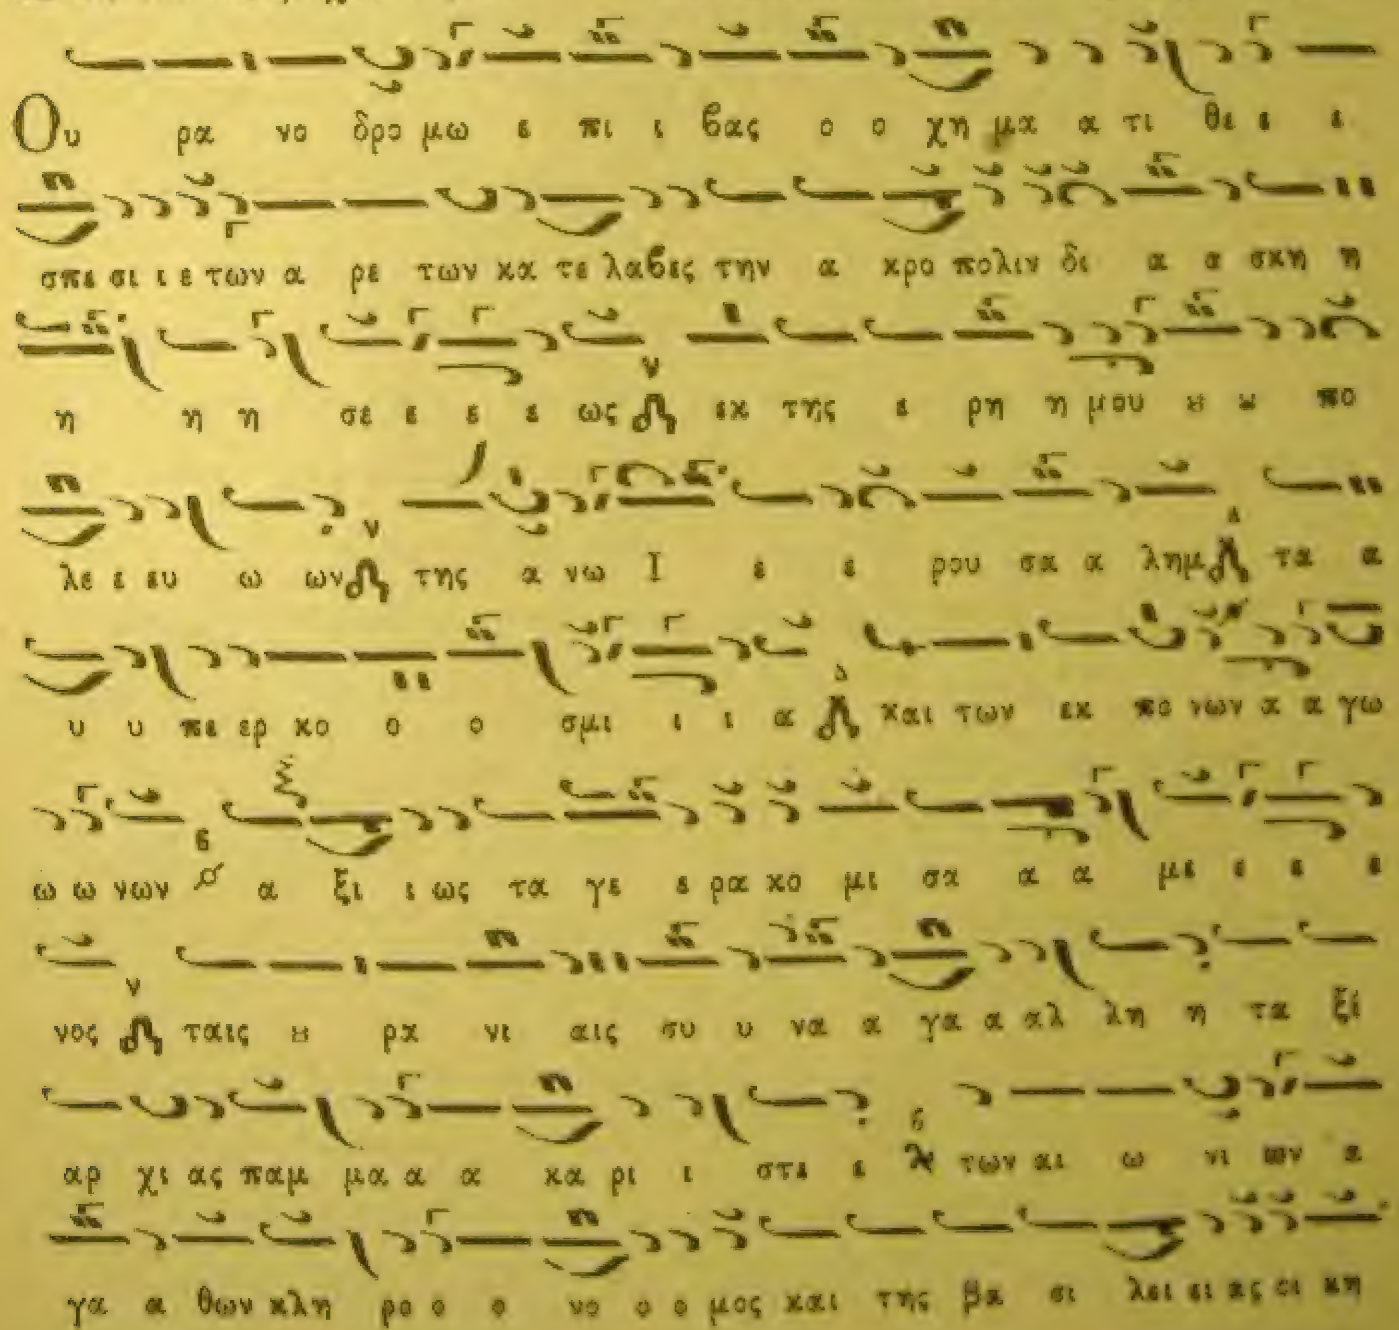 Ου ρα νο δρο μω ε πι ι βας ο ο χη μα α τι θει ε ε
σπε σι ι ε των α ρε των κα τε λαβες την α κρο πολιν δι α α σκη η
η η η σε ε ε ε ως εκ της ε ρη η μου ȣ ȣ πο
λε ε ευ ω ων της α νω Ι ε ε ρου σα α λημ τα α
υ υ πε ερ κο ο ο σμι ι ι α και των εκ πο νων α α γω
ω ω νων α ξι ι ως τα γε ε ρα κο μι σα α α με ε ε ε
νος ταις ȣ ρα νι αις συ υ να α γα α αλ λη η τα ξι
αρ χι ας παμ μα α α κα ρι ι στε ε των αι ω νι ων α
γα α θων κλη ρο ο ο νο ο ο μος και της βα σι λει ει ας οι κη